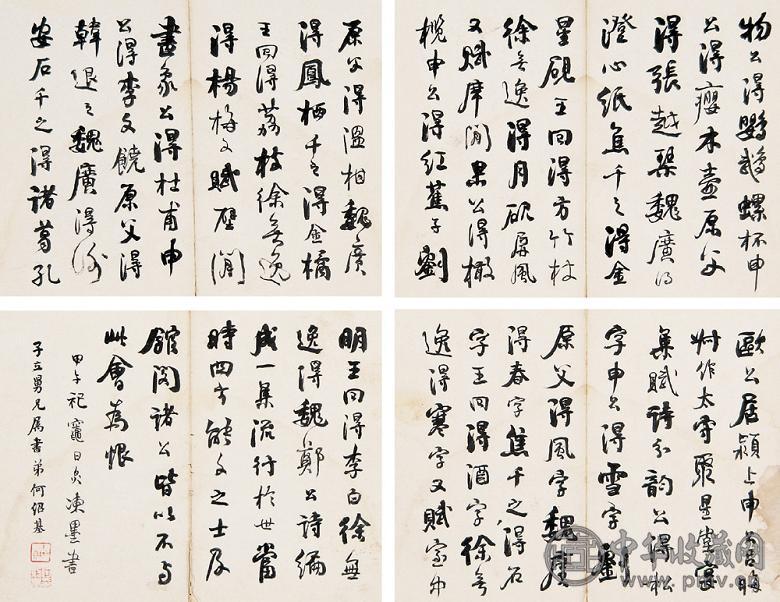 歐公居潁上申公呂晦
叔作太守聚星堂宴
集賦詩分韻公得松
字申公得雪字劉
原父得風字魏廣
得春字焦千之得石
字王回得酒字徐無
逸得寒字又賦室中
物公得鸚鵡螺杯申
公得癭木壺原父
得張越琴魏廣得
澄心紙焦千之得金
星硯王回得方竹杖
徐無逸得月硯屏風
又賦席間果公得橄
欖申公得紅蕉子劉
原父得溫柑魏廣
得鳳栖千之得金橘
王回得荔枝徐無逸
得楊梅又賦壁間
畫象公得杜甫申
公得李文饒原父得
韓退之魏廣得謝
安石千之得諸葛孔
明王回得李白徐無
逸得魏鄭公詩編
成一集流行於世當
時四方能文之士及
館閣諸公皆以不與
此會為恨
甲午祀竈日炙凍墨書
子立男兄屬書弟何紹基
中华收藏网